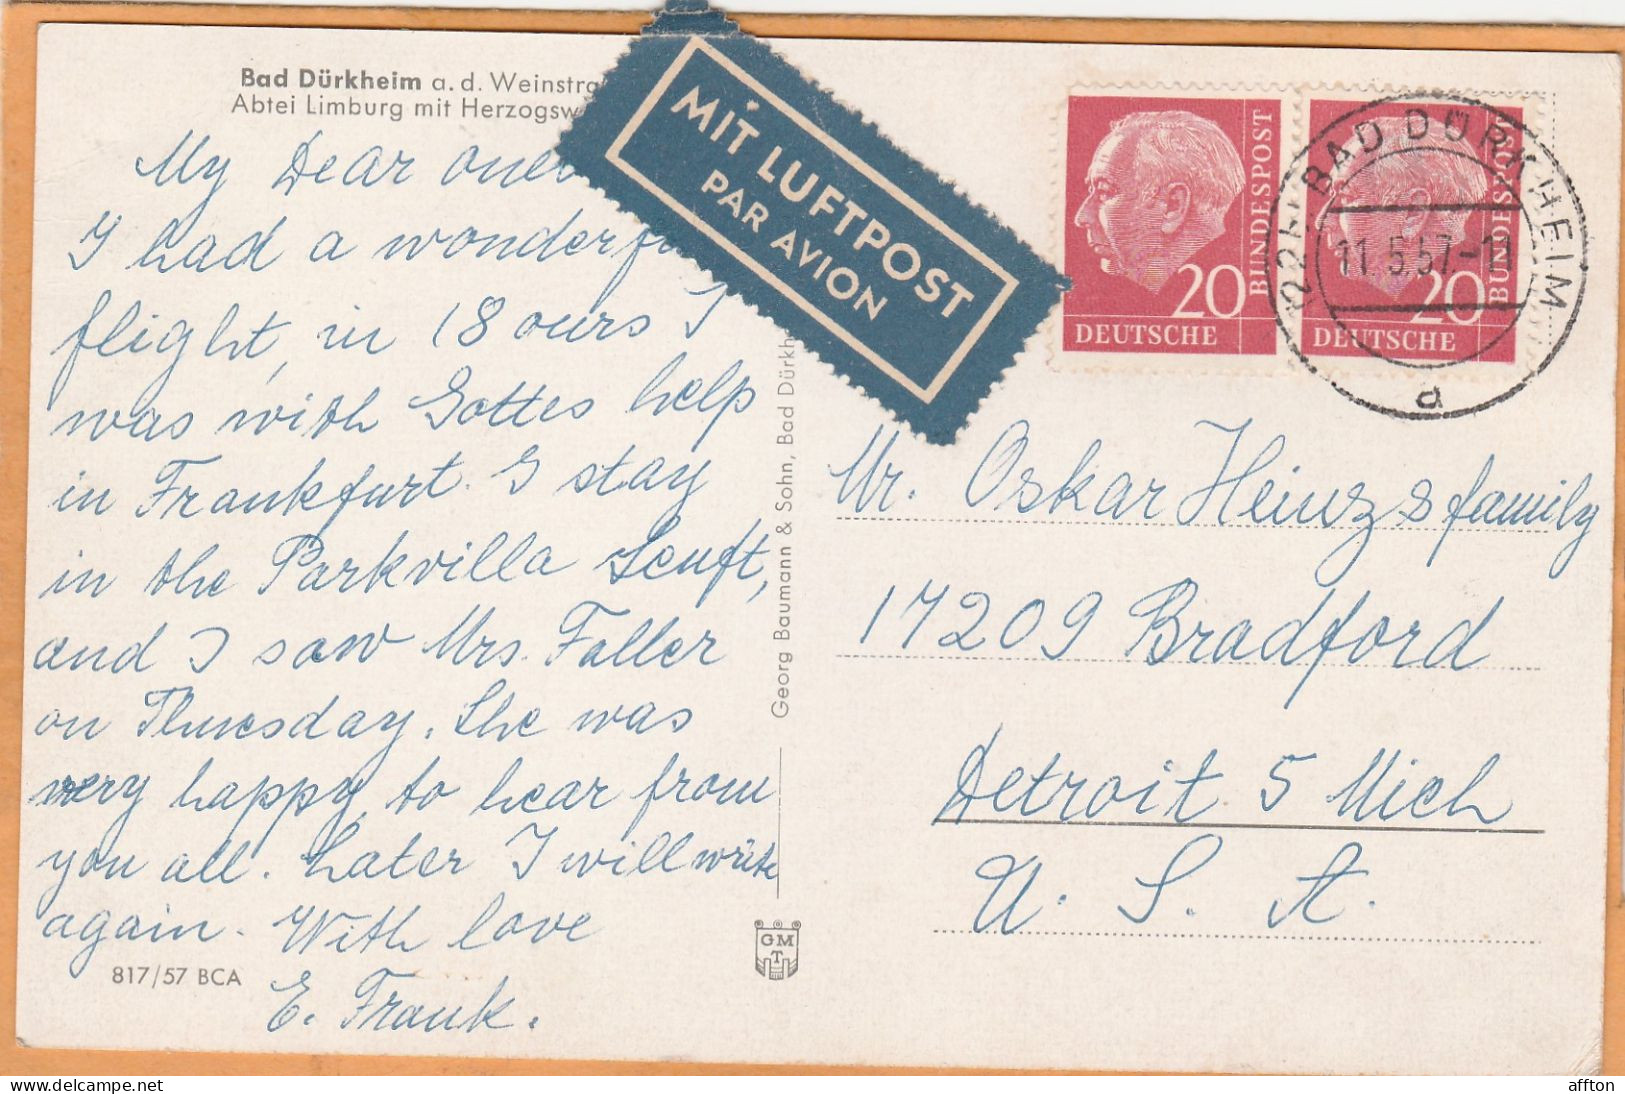 Bad Dürkheim a. d. Weinstra
Abtei Limburg mit Herzogsw
My Dear ones
I had a wonderfu
flight, in 18 ours I
was with Gottes help
in Frankfurt. I stay
in the Parkvilla Senft,
and I saw Mrs. Faller
on Thuesday. She was
very happy to hear from
you all. Later I will write
again. With love
E. Frank.
817/57 BCA
Georg Baumann & Sohn, Bad Dürkh
GMT
MIT LUFTPOST
PAR AVION
20
DEUTSCHE
BUNDESPOST
20
DEUTSCHE
BUNDESPOST
BAD DÜRKHEIM
11.5.57.-
d
Mr. Oskar Heinz & family
17209 Bradford
Detroit 5 Mich
U. S. A.
affton